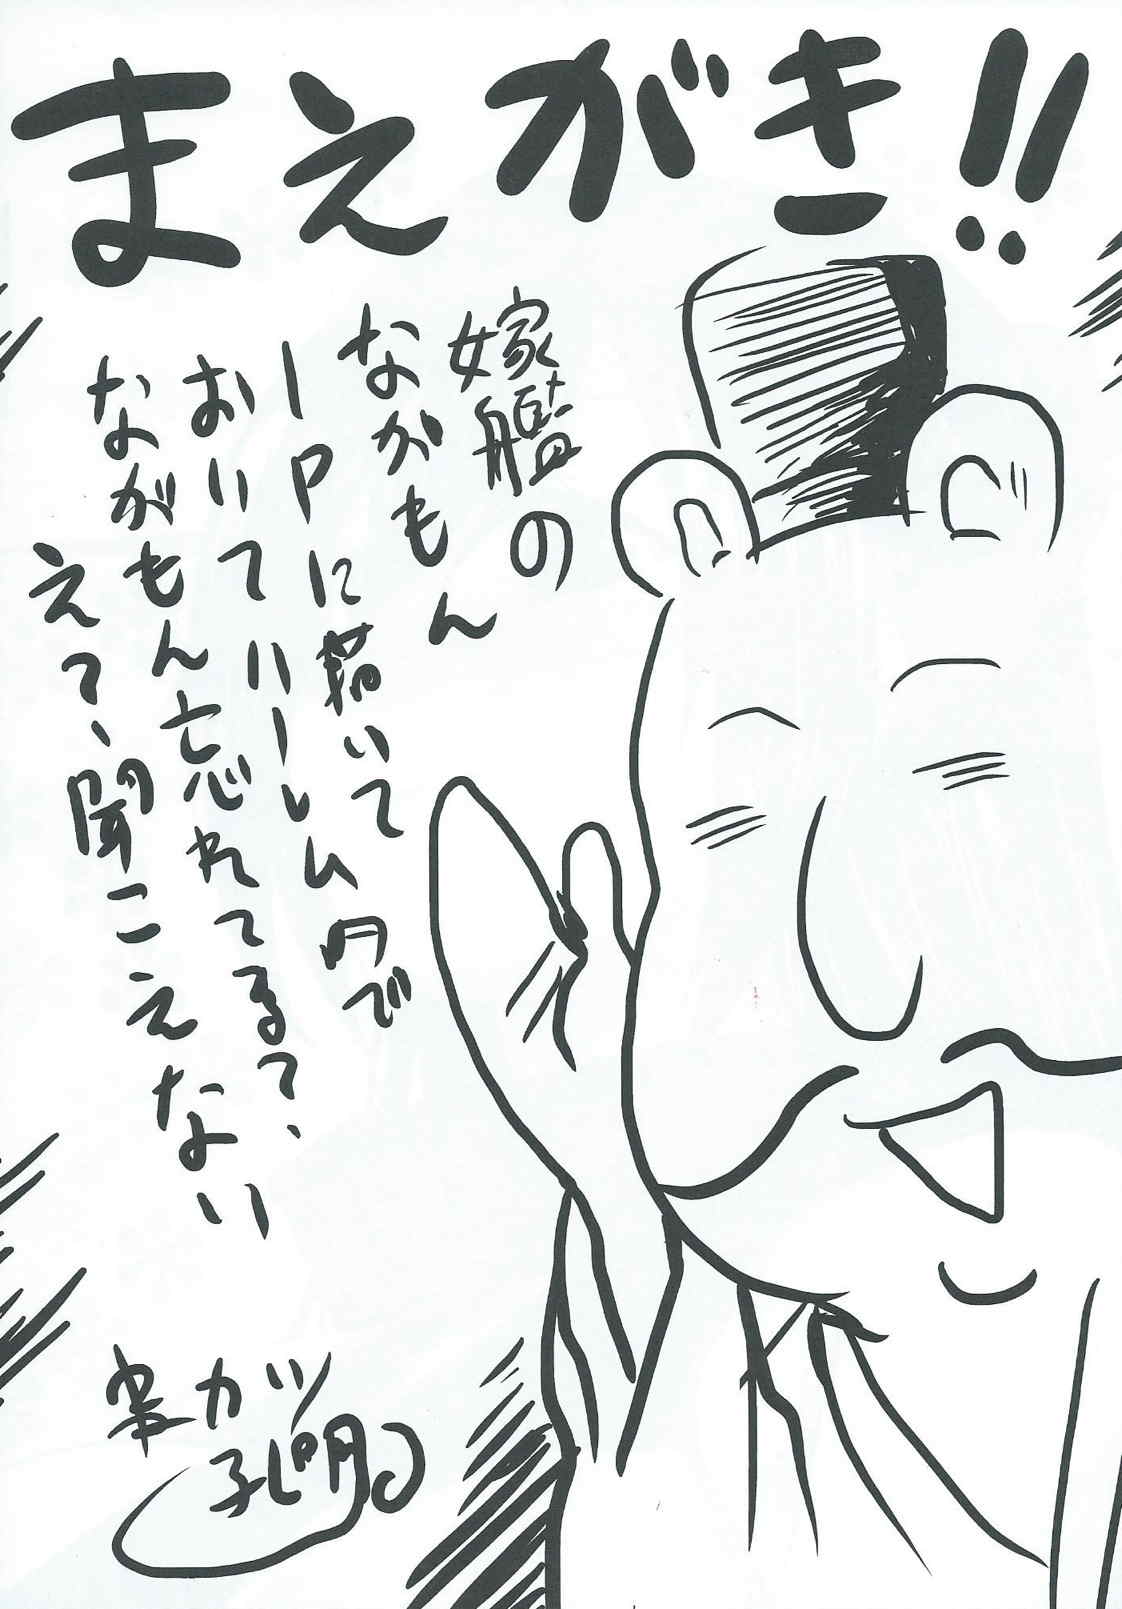 まえがき!!
嫁艦の
ながもん
1Pに描いて
おいてハーレム内で
ながもん忘れてるって、
えて、聞こえない
カツ
孔明